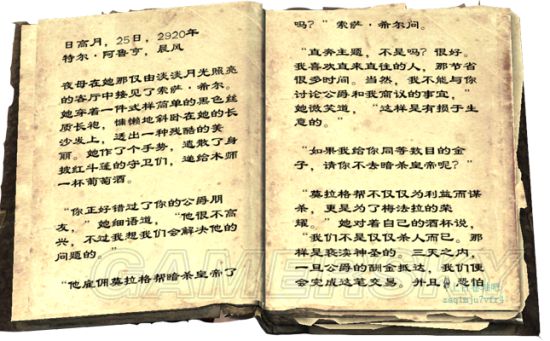 日高月，25日，2920年
特尔·阿鲁亨，晨风
夜母在她那仅由淡淡月光照亮
的客厅中接见了索萨·希尔。
她穿着一件式样简单的黑色丝
质长袍，慵懒地斜卧在她的长
沙发上，透出一种残酷的美
丽。她作了个手势，遣散了身
披红斗篷的守卫们，递给术师
一杯葡萄酒。
“你正好错过了你的公爵朋
友，”她细语道，“他很不高
兴，不过我想我们会解决他的
问题的。”
“他雇佣莫拉格帮暗杀皇帝了
吗？”索萨·希尔问。
“直奔主题，不是吗？很好。
我喜欢直来直往的人，那节省
很多时间。当然，我不能与你
讨论公爵和我商议的事宜，”
她微笑道，“这样是有损于生
意的。”
“如果我给你同等数目的金
子，请你不去暗杀皇帝呢？”
“莫拉格帮不仅仅为利益而谋
杀，更是为了梅法拉的荣
耀。”她对着自己的酒杯说，
“我们不是仅仅杀人而已。那
样是亵渎神圣的。三天之内，
一旦公爵的酬金抵达，我们便
会完成这笔交易。并且，恐怕
GAMERSKY